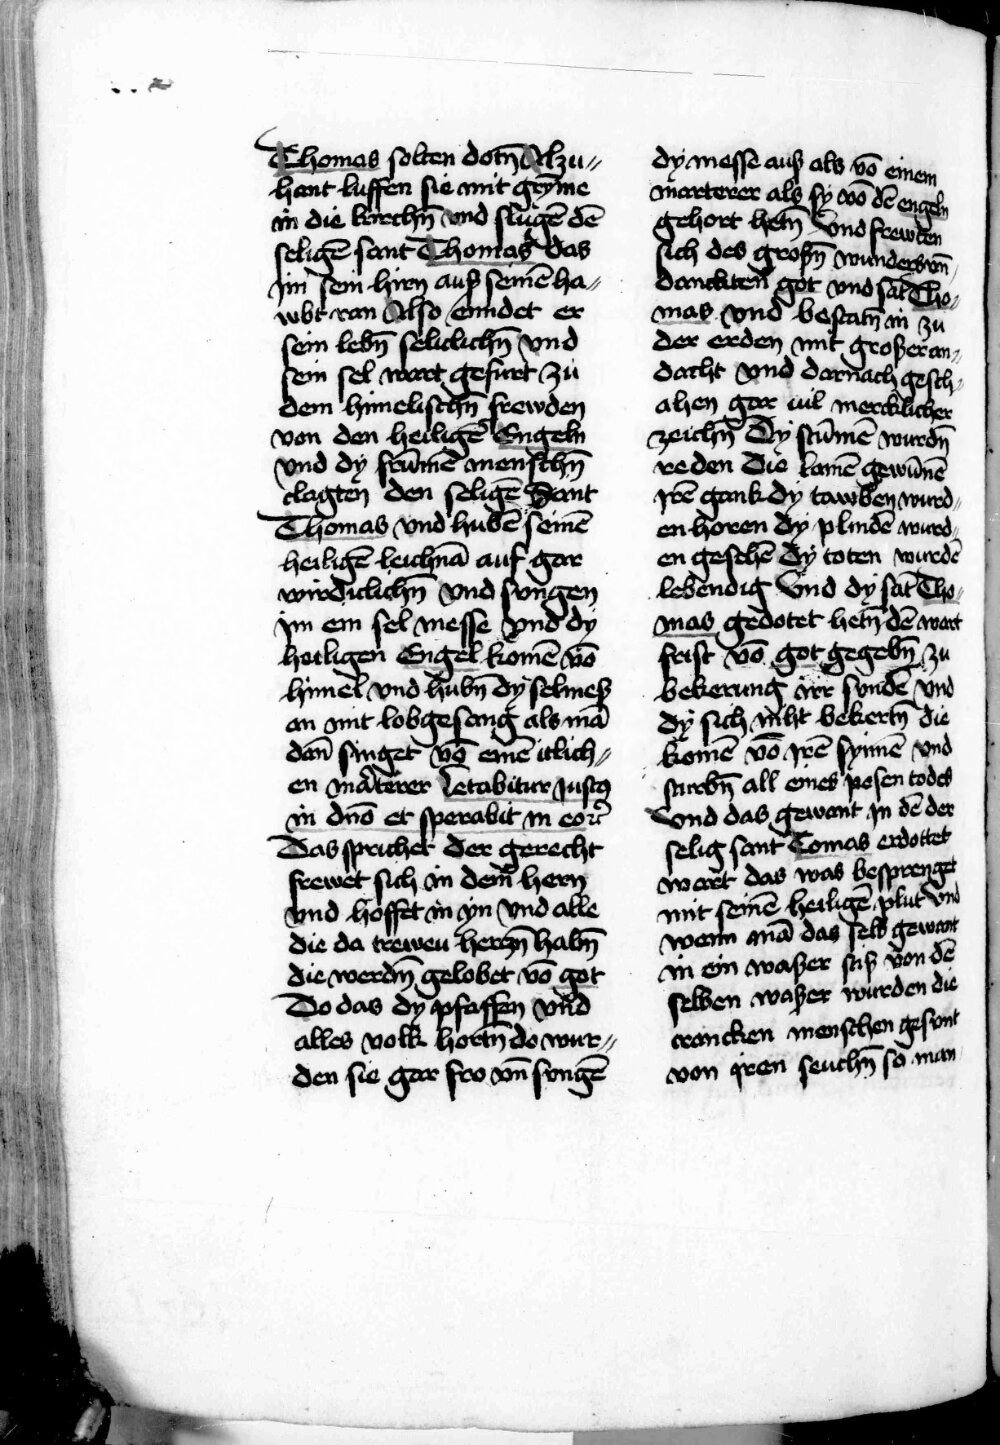 Thomas solten dotn̄ Alzu〃
hant luffen sie mit gryme
in die kirchn̄ vnd slugē dē
seligē sant Thomas das
jm sein hirn auß seinē ha〃
wbt ran Also enndet er
sein lebn̄ seliclichn̄ vnd
sein sel wart gefurt zu
dem himelischn̄ frewden
von den heiligē Engeln
vnd dy frūmē menschn̄
clagten den seligē Sant
Thomas vnd hubē seinē
heiligē leichnā auf gar
wirdiclichn̄ vnd sungen
jm ein sel messe vnd dy
heiligen Engel komē vō
himel vnd hubn̄ dy selmeß
an mit lobgesang als mā
dan̄ singet vō einē itlich〃
en marterer Letabitur justꝯ
in dn̄o et sperabit in eo
Das sprichet der gerecht
frewet sich in dem hern
vnd hoffet in yn vnd alle
die da trewen herczn̄ habn̄
die werdn̄ gelobet vō got
Do das dy pfaffen vnd
alles volk hortn̄ do wur〃
den sie gar fro vn̄ sungē
dy messe auß als vō einem
marterer als sy vō dē engeln
gehort hetn̄ Vnd frewten
sich des großn̄ wunders vn̄
danckten got vnd sāt Tho〃
mas vnd bestatn̄ in zu
der erden mit großer an〃
dacht vnd darnach gesch〃
ahen gar vil mercklicher
zeichn̄ Dy stūmē wurdn̄
reden die lamē gewūnē
jrē gank dy tawben wurd〃
en horen dy plindē wurd〃
en gesehē Dy toten wurdē
lebendig Vnd dy sāt Tho〃
mas gedotet hetn̄ dē wart
frist vō got gegebn̄ zu
bekerung irr sundē vnd
dy sich niht bekertn̄ die
komē vō jrē synnē vnd
sturbn̄ all eines pesen todes
Vnd das gewant jn dē der
selig sant Tomas erdottet
wart das was besprenget
mit seinē heiligē plut vnd
wenn mā das selb gewant
in ein waßer stiß von dē
selben waßer wurden die
crancken menschen gesunt
von jren seuchn̄ so man